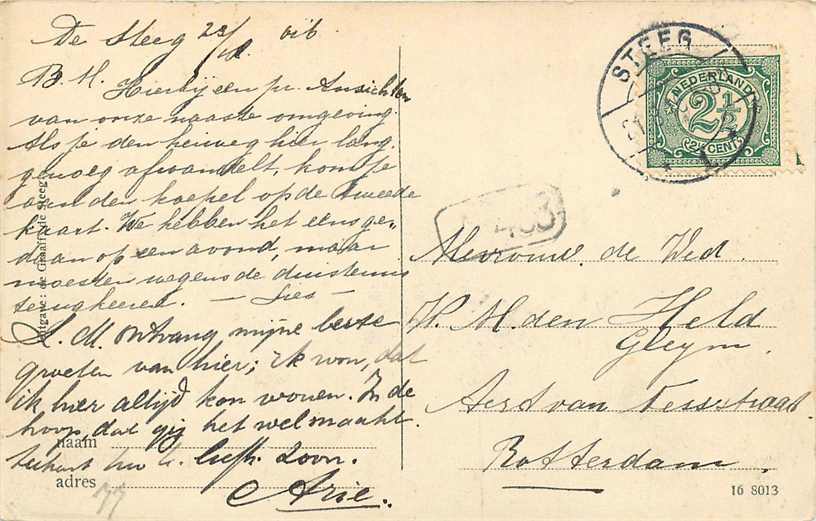 De Steeg 23/8
B. M. Hierbij een pr. Ansichten
van onze naaste omgeving.
Als je den heuweg hier lang
genoeg afwandelt, kom je
aan den koepel op de tweede
kaart. We hebben het eens ge-
daan op een avond, maar
moesten wegens de duisternis
terugkeeren. — Lies —
L. M. ontvang mijne beste
groeten van hier; ik wou, dat
ik hier altijd kon wonen. In de
hoop, dat gij het wel maakt
teekent uw liefh. zoon.
Arie.
naam
adres
77
Uitgave: de Graaff, de Steeg
STEEG
NEDERLAND
2½
2½ CENT
403
Mevrouw de Wed.
H. M. den Held
Gleym.
Aert van Nesstraat.
Rotterdam.
16 8013